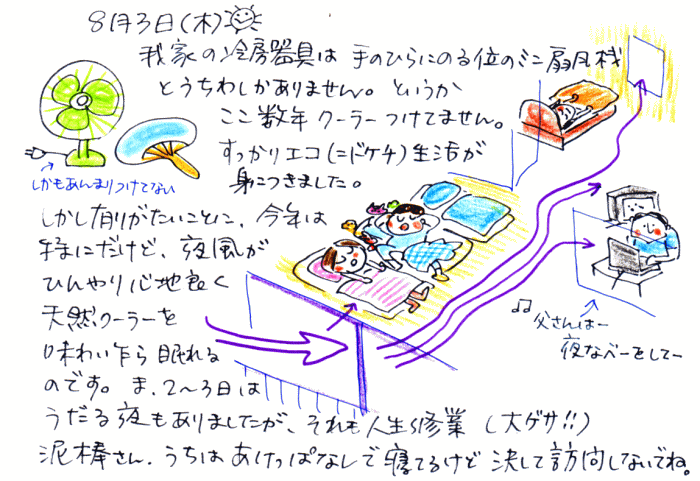 8月3日(木)
我家の冷房器具は手のひらにのる位のミニ扇風機
とうちわしかありません。というか
ここ数年クーラーつけてません。
すっかりエコ(=ドケチ)生活が
身につきました。
しかもあんまりつけてない
しかし有りがたいことに、今年は
特にだけど、夜風が
ひんやり心地良く
天然クーラーを
味わい乍ら眠れる
のです。ま、2〜3日は
うだる夜もありましたが、それも人生修業(大ゲサ!!)
泥棒さん、うちはあけっぱなしで寝てるけど決して訪問しないでね。
♫父さんはー
夜なべーをしてー